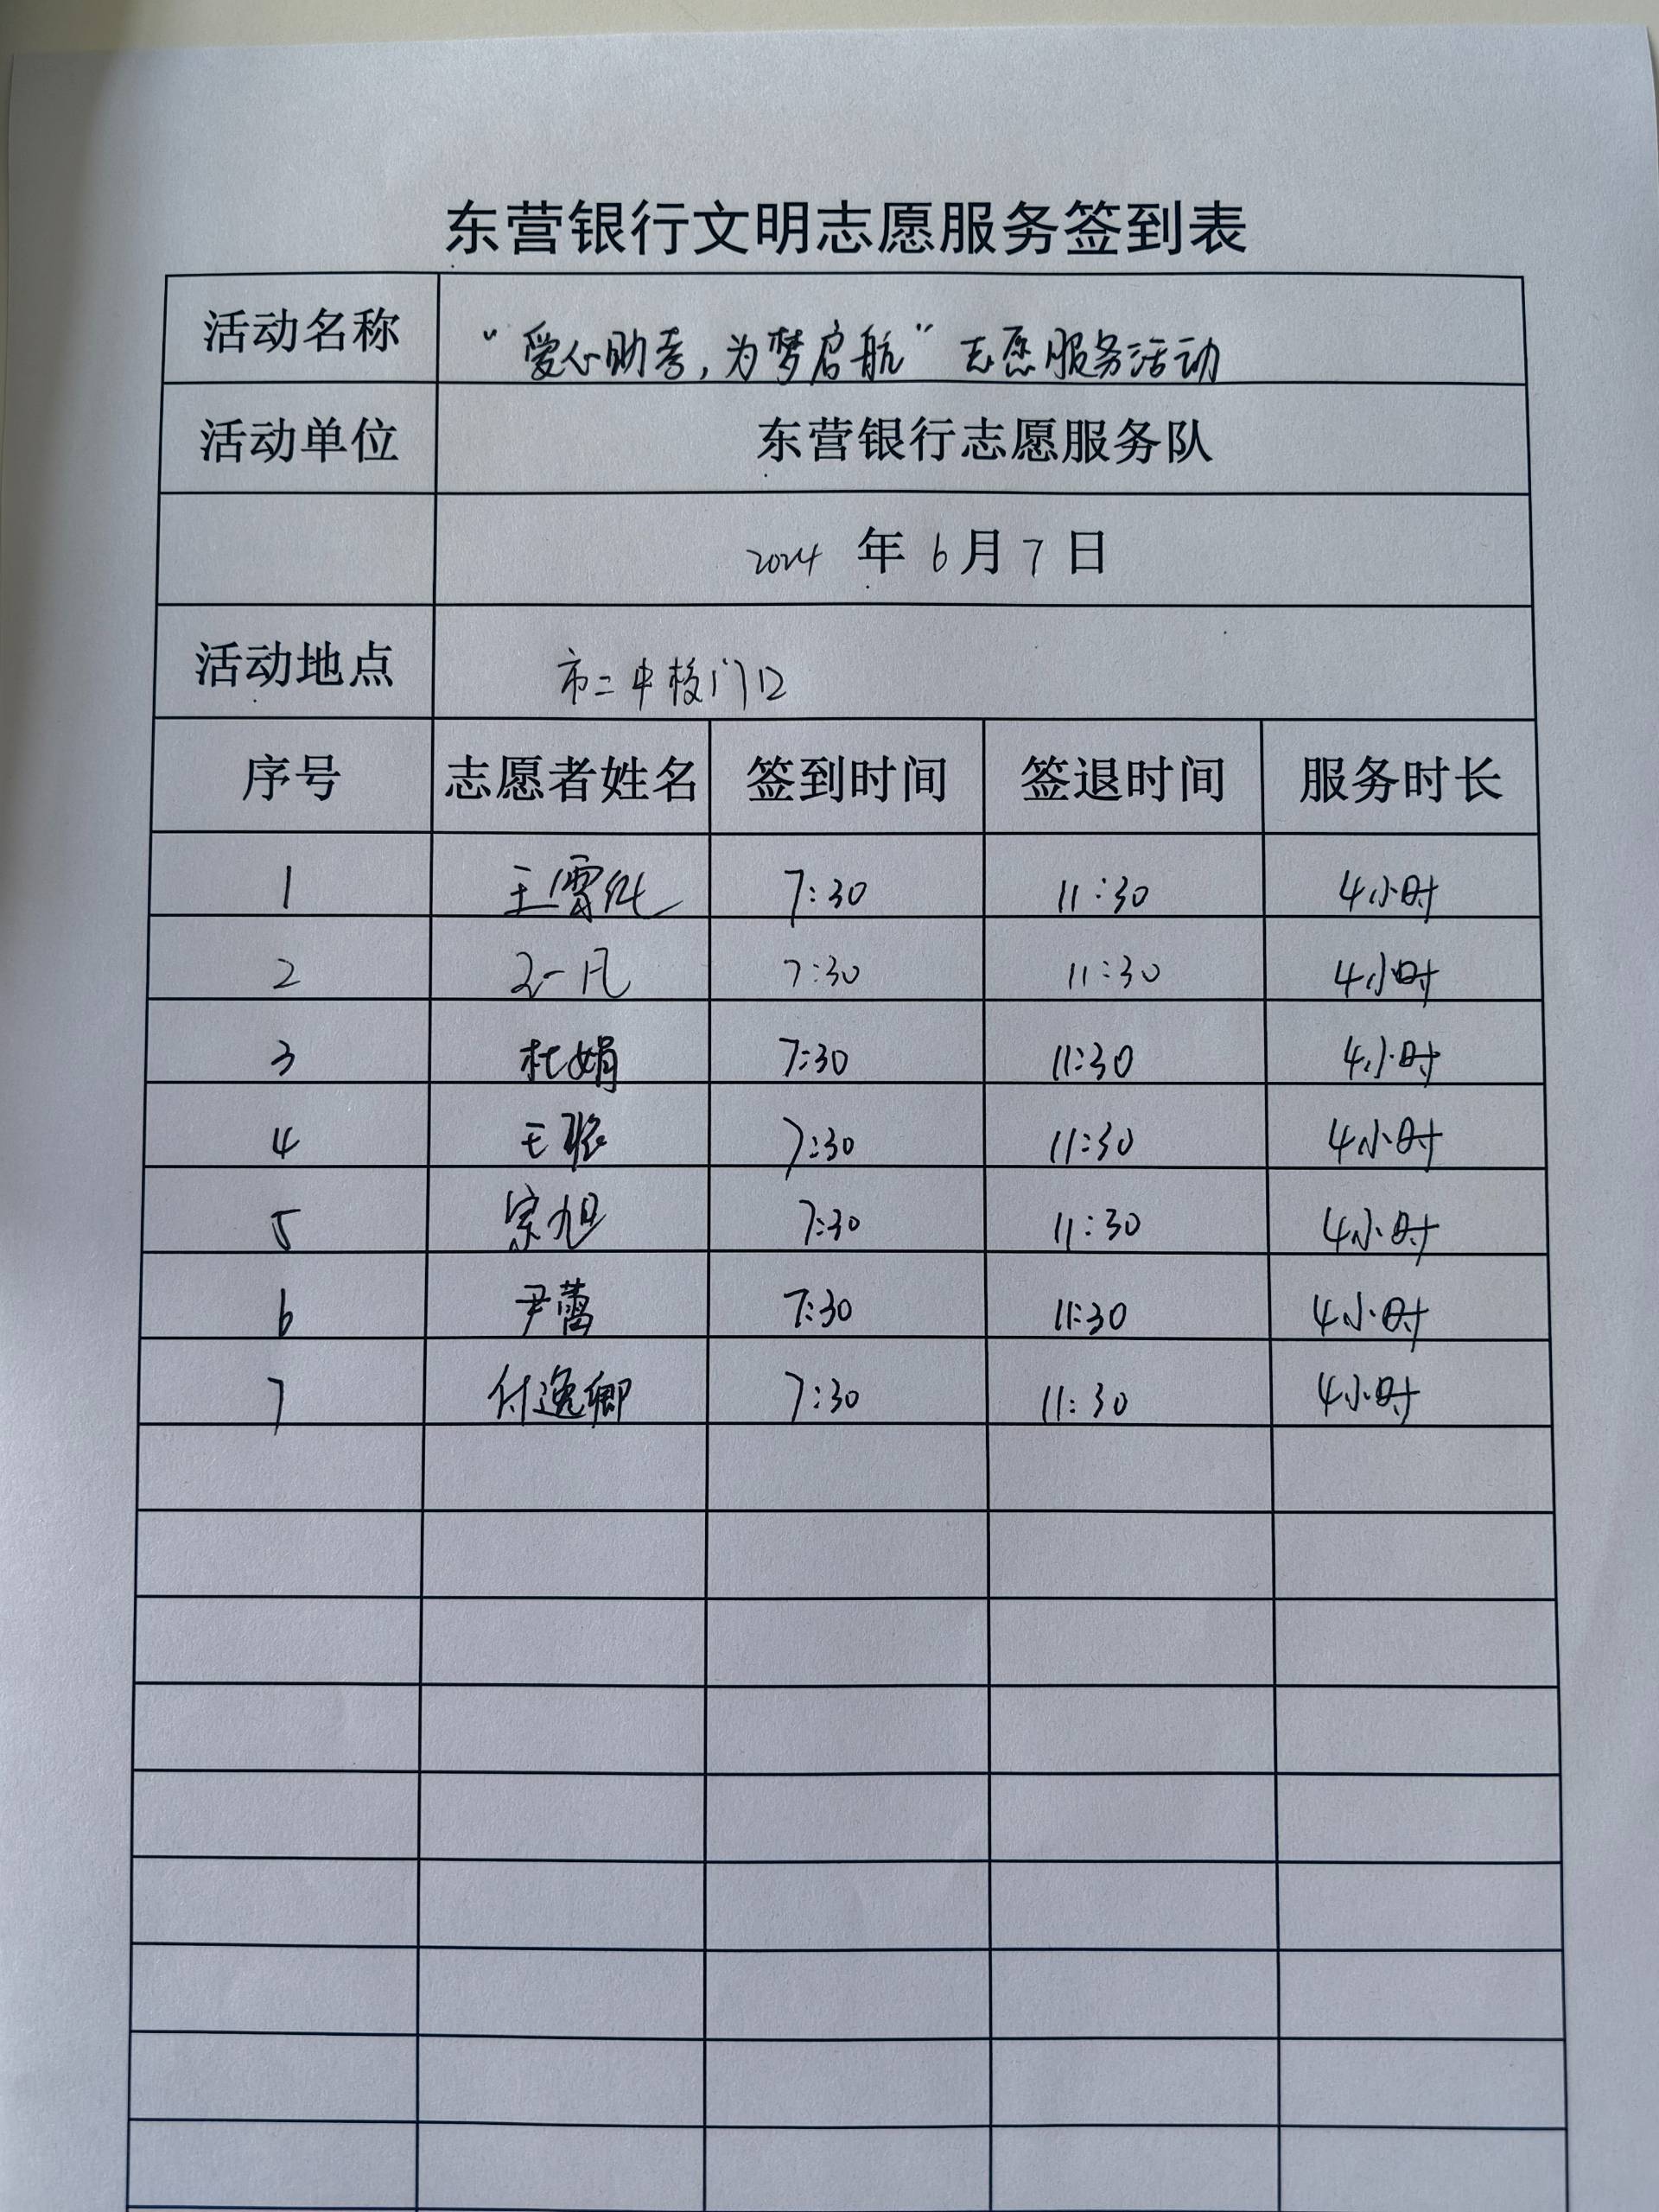 东营银行文明志愿服务签到表
活动名称 “爱心助考,为梦启航”志愿服务活动
活动单位 东营银行志愿服务队
2024 年 6 月 7 日
活动地点 市二中校门口
序号 志愿者姓名 签到时间 签退时间 服务时长
1 王雪纯 7:30 11:30 4小时
2 一凡 7:30 11:30 4小时
3 杜娟 7:30 11:30 4小时
4 王 7:30 11:30 4小时
5 宗旭 7:30 11:30 4小时
6 尹蕾 7:30 11:30 4小时
7 付逸卿 7:30 11:30 4小时